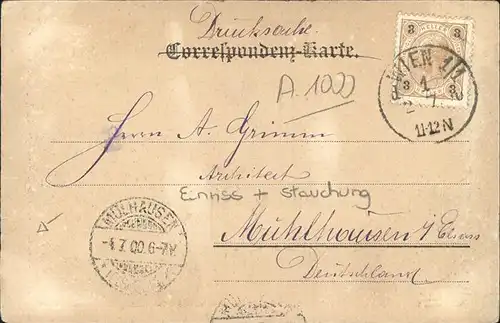 Drucksache.
Correspondenz-Karte.
3 HELLER 3
3 3
WIEN 1/1
1
11-12N
A.1022
Herrn A. Grimm
Architect
Einriss + Stauchung
Mühlhausen i/ Elsass
Deutschland
MÜLHAUSEN
-4.7.00.6-7N.